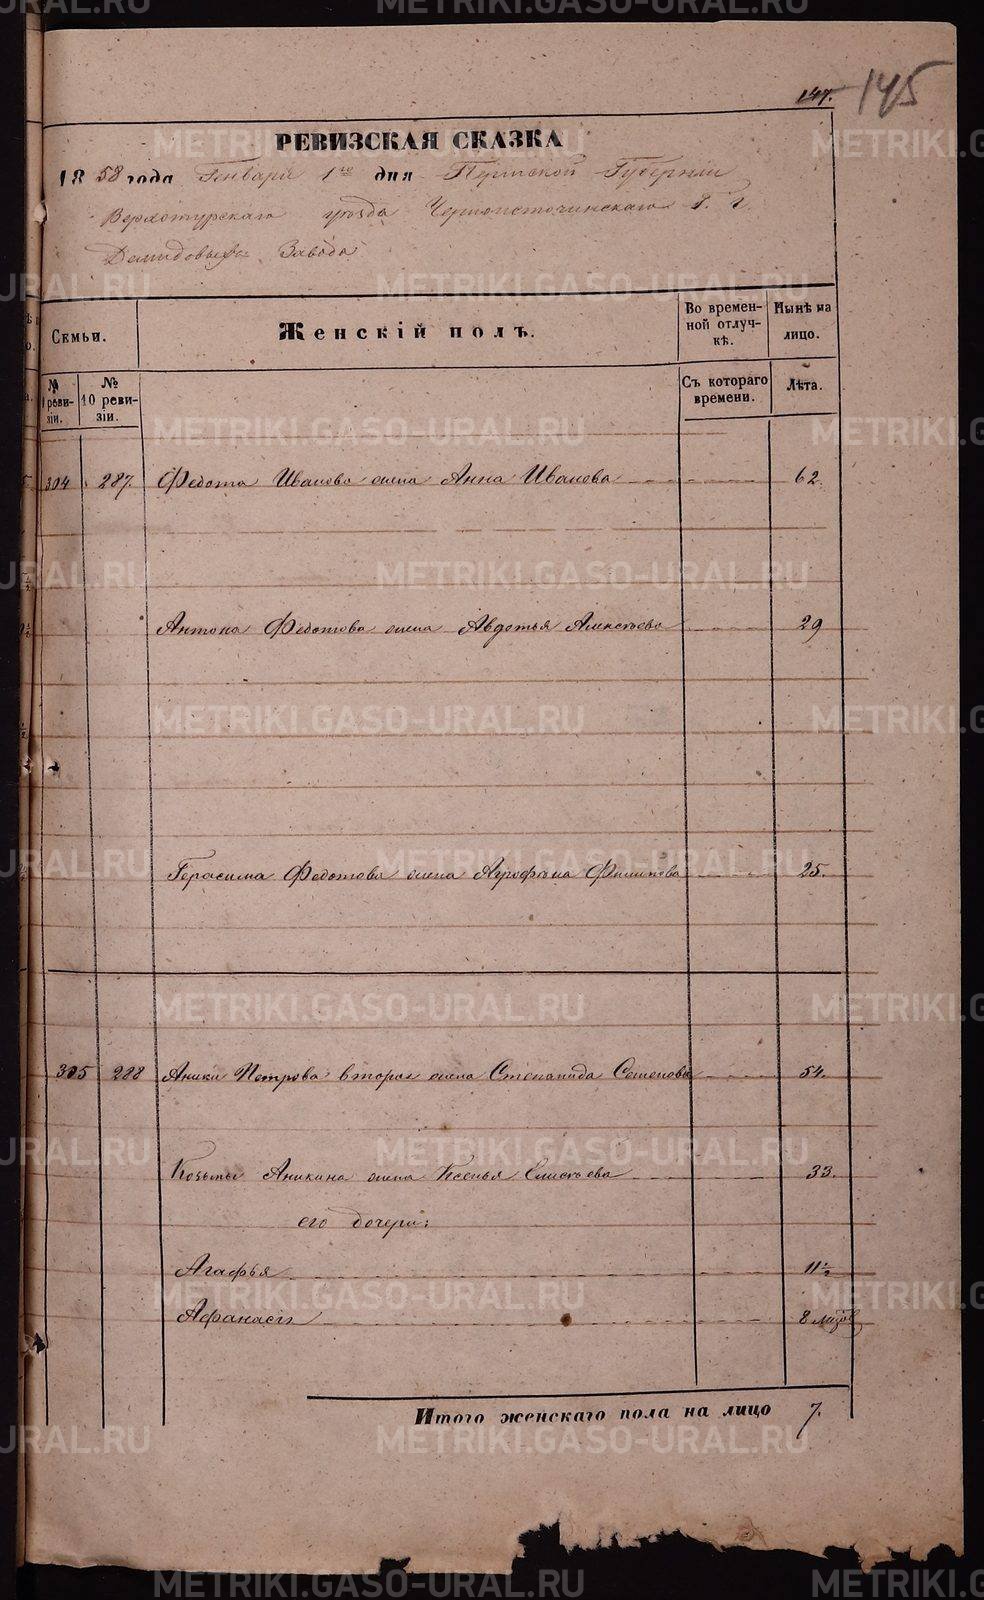 147. 145
РЕВИЗСКАЯ СКАЗКА
1858 года Генваря 1го дня Пермской Губернии
Верхотурскаго уезда Черноисточинскаго Г. г.
Демидовыхъ Завода
Семьи.
Женскій полъ.
Во времен-
ной отлуч-
кѣ.
Нынѣ на
лицо.
№
реви-
зіи.
№
10 реви-
зіи.
Съ котораго
времени.
Лѣта.
304 287. Федота Иванова жена Анна Иванова 62.
Антона Федотова жена Авдотья Алексѣева 29
Герасима Федотова жена Агрофѣна Филипова 25.
305 288 Аники Петрова вторая жена Степанида Семенова 54.
Козьмы Аникина жена Ксенья Елисѣева 33.
его дочери:
Агафья 11½
Афанасія 8 мѣсяц
Итого женскаго пола на лицо 7.
METRIKI.GASO-URAL.RU